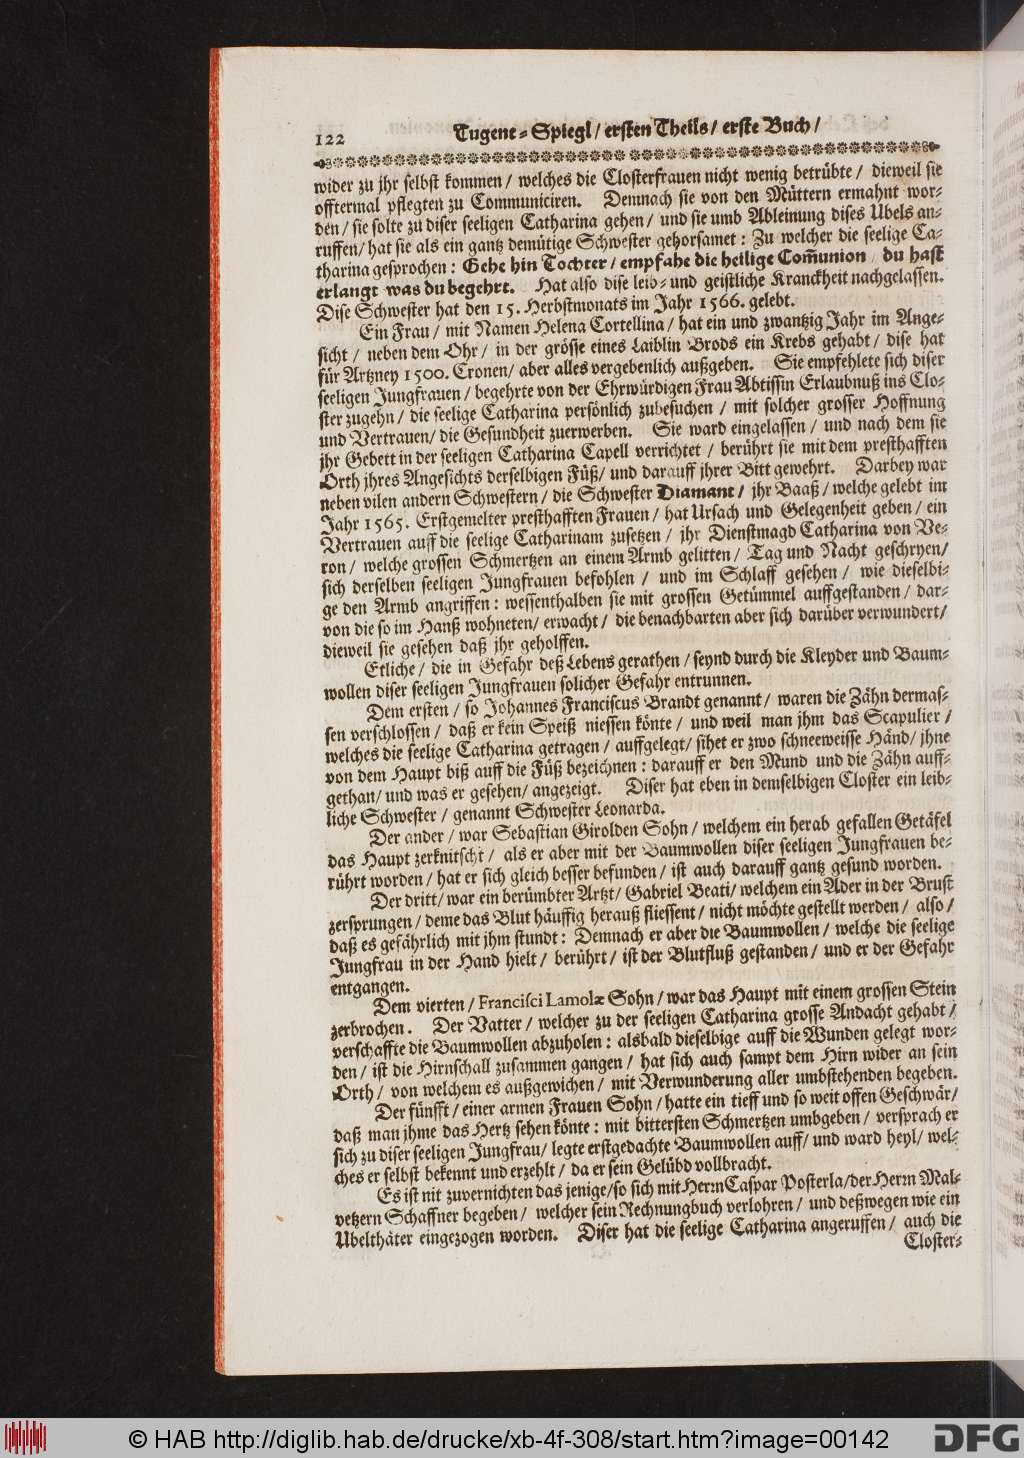 122 Tugent-Spiegl/ ersten Theils/ erste Buch/
wider zu jhr selbst kommen/ welches die Closterfrauen nicht wenig betrübte/ dieweil sie
offtermal pflegten zu Communiciren. Demnach sie von den Müttern ermahnt wor-
den/ sie solte zu diser seeligen Catharina gehen/ und sie umb Ableinung dises Ubels an-
ruffen/ hat sie als ein gantz demütige Schwester gehorsamet: Zu welcher die seelige Ca-
tharina gesprochen: Gehe hin Tochter/ empfahe die heilige Com̃union/ du hast
erlangt was du begehrt. Hat also dise leib- und geistliche Kranckheit nachgelassen.
Dise Schwester hat den 15. Herbstmonats im Jahr 1566. gelebt.
Ein Frau/ mit Namen Helena Cortellina/ hat ein und zwantzig Jahr im Ange-
sicht/ neben dem Ohr/ in der grösse eines Laiblin Brods ein Krebs gehabt/ dise hat
für Artzney 1500. Cronen/ aber alles vergebenlich außgeben. Sie empfehlete sich diser
seeligen Jungfrauen/ begehrte von der Ehrwürdigen Frau Abtissin Erlaubnuß ins Clo-
ster zugehn/ die seelige Catharina persönlich zubesuchen/ mit solcher grosser Hoffnung
und Vertrauen/ die Gesundheit zuerwerben. Sie ward eingelassen/ und nach dem sie
jhr Gebett in der seeligen Catharina Capell verrichtet/ berührt sie mit dem presthafften
Orth jhres Angesichts derselbigen Füß/ und darauff jhrer Bitt gewehrt. Darbey war
neben vilen andern Schwestern/ die Schwester Diamant/ jhr Baaß/ welche gelebt im
Jahr 1565. Erstgemelter presthafften Frauen/ hat Ursach und Gelegenheit geben/ ein
Vertrauen auff die seelige Catharinam zusetzen/ jhr Dienstmagd Catharina von Ve-
ron/ welche grossen Schmertzen an einem Armb gelitten/ Tag und Nacht geschryen/
sich derselben seeligen Jungfrauen befohlen/ und im Schlaff gesehen/ wie dieselbi-
ge den Armb angriffen: wessenthalben sie mit grossen Getümmel auffgestanden/ dar-
von die so im Hanß wohneten/ erwacht/ die benachbarten aber sich darüber verwundert/
dieweil sie gesehen daß jhr geholffen.
Etliche/ die in Gefahr deß Lebens gerathen/ seynd durch die Kleyder und Baum-
wollen diser seeligen Jungfrauen solicher Gefahr entrunnen.
Dem ersten/ so Johannes Franciscus Brandt genannt/ waren die Zähn dermas-
sen verschlossen/ daß er kein Speiß niessen könte/ und weil man jhm das Scapulier/
welches die seelige Catharina getragen/ auffgelegt/ sihet er zwo schneeweisse Händ/ jhne
von dem Haupt biß auff die Füß bezeichnen: darauff er den Mund und die Zähn auff-
gethan/ und was er gesehen/ angezeigt. Diser hat eben in demselbigen Closter ein leib-
liche Schwester/ genannt Schwester Leonarda.
Der ander/ war Sebastian Girolden Sohn/ welchem ein herab gefallen Getäfel
das Haupt zerknitscht/ als er aber mit der Baumwollen diser seeligen Jungfrauen be-
rührt worden/ hat er sich gleich besser befunden/ ist auch darauff gantz gesund worden.
Der dritt/ war ein berümbter Artzt/ Gabriel Beati/ welchem ein Ader in der Brust
zersprungen/ deme das Blut häuffig herauß fliessent/ nicht möchte gestellt werden/ also/
daß es gefährlich mit jhm stundt: Demnach er aber die Baumwollen/ welche die seelige
Jungfrau in der Hand hielt/ berührt/ ist der Blutfluß gestanden/ und er der Gefahr
entgangen.
Dem vierten/ Francisci Lamolæ Sohn/ war das Haupt mit einem grossen Stein
zerbrochen. Der Vatter/ welcher zu der seeligen Catharina grosse Andacht gehabt/
verschaffte die Baumwollen abzuholen: alsbald dieselbige auff die Wunden gelegt wor-
den/ ist die Hirnschall zusammen gangen/ hat sich auch sampt dem Hirn wider an sein
Orth/ von welchem es außgewichen/ mit Verwunderung aller umbstehenden begeben.
Der fünfft/ einer armen Frauen Sohn/ hatte ein tieff und so weit offen Geschwär/
daß man jhme das Hertz sehen könte: mit bittersten Schmertzen umbgeben/ versprach er
sich zu diser seeligen Jungfrau/ legte erstgedachte Baumwollen auff/ und ward heyl/ wel-
ches er selbst bekennt und erzehlt/ da er sein Gelübd vollbracht.
Es ist nit zuvernichten das jenige/ so sich mit Herrn Caspar Posterla/ der Herrn Mal-
vetzern Schaffner begeben/ welcher sein Rechnungbuch verlohren/ und deßwegen wie ein
Ubelthäter eingezogen worden. Diser hat die seelige Catharina angeruffen/ auch die
Closter-
© HAB http://diglib.hab.de/drucke/xb-4f-308/start.htm?image=00142
DFG